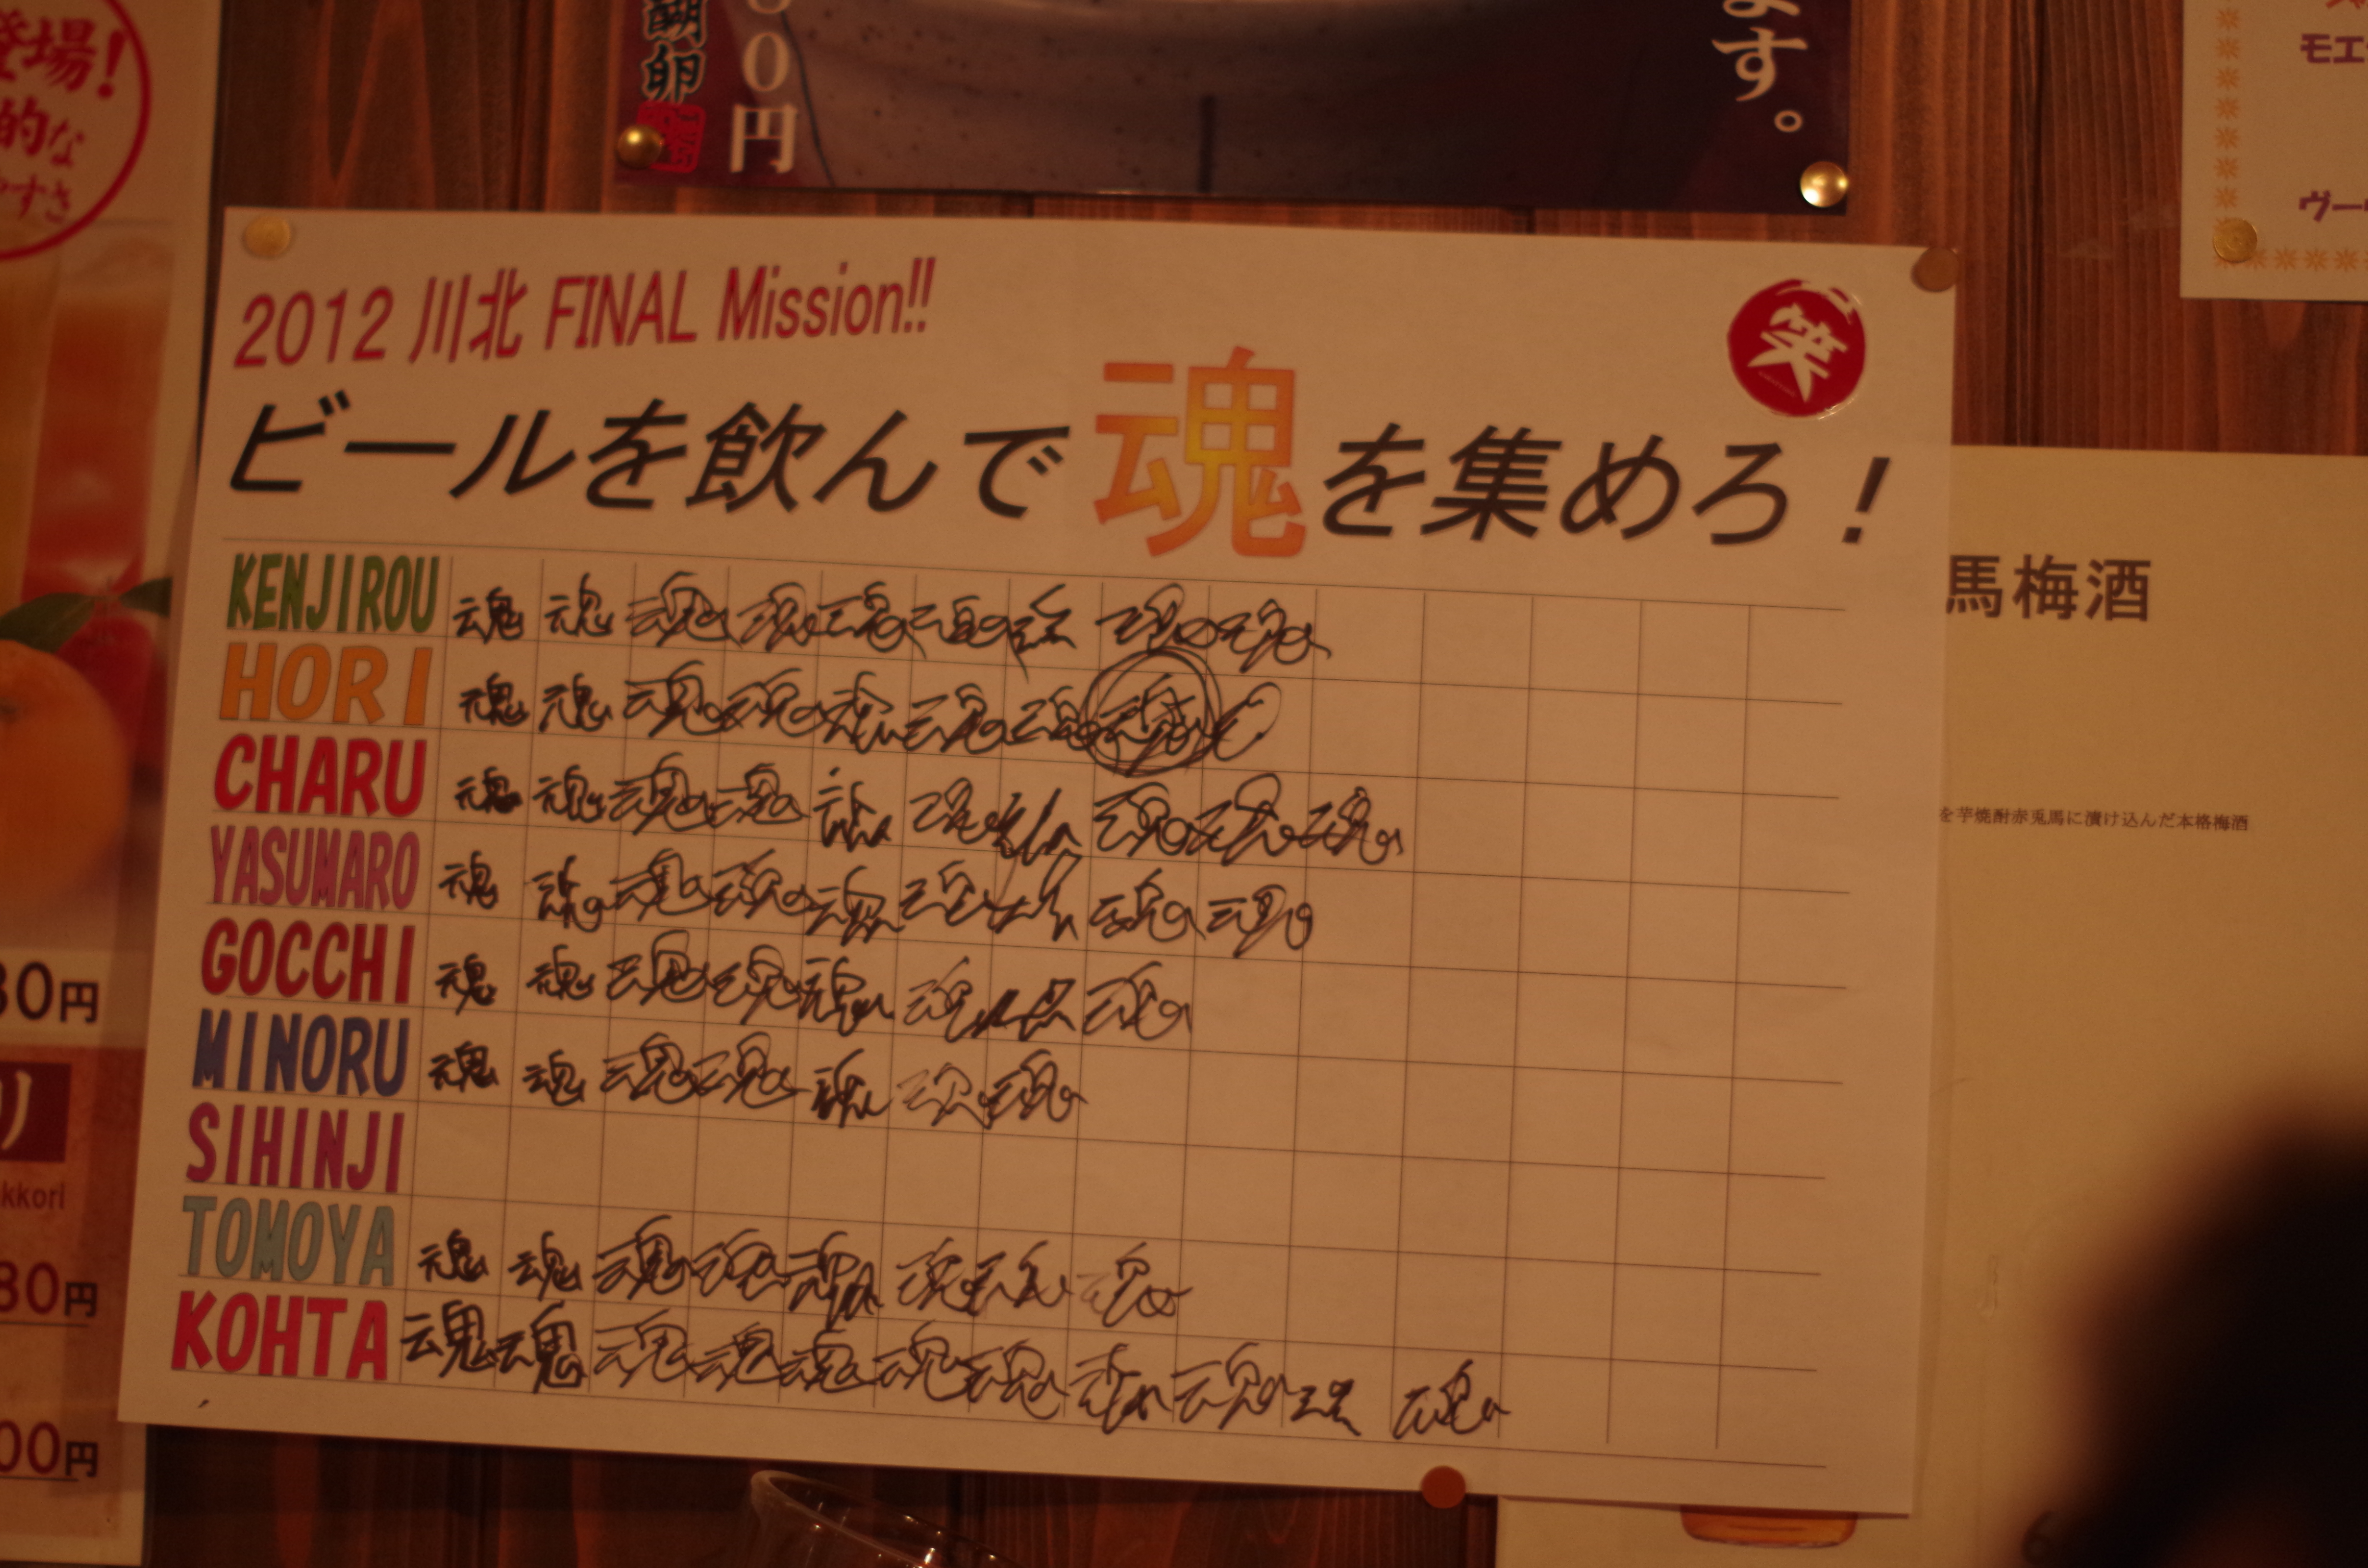 登場!
的な
やすさ
卵
0円
ます。
モエ
ヴー
2012 川北 FINAL Mission!!
笑
ビールを飲んで魂を集めろ!
KENJIROU 魂 魂 魂 魂 魂 魂 魂 魂 魂
HORI 魂 魂 魂 魂 魂 魂 魂 魂
CHARU 魂 魂 魂 魂 魂 魂 魂 魂 魂 魂
YASUMARO 魂 魂 魂 魂 魂 魂 魂 魂 魂
GOCCHI 魂 魂 魂 魂 魂 魂 魂 魂
MINORU 魂 魂 魂 魂 魂 魂 魂
SIHINJI
TOMOYA 魂 魂 魂 魂 魂 魂 魂 魂
KOHTA 魂 魂 魂 魂 魂 魂 魂 魂 魂 魂 魂
馬梅酒
を芋焼酎赤兎馬に漬け込んだ本格梅酒
80円
リ
kkori
80円
00円